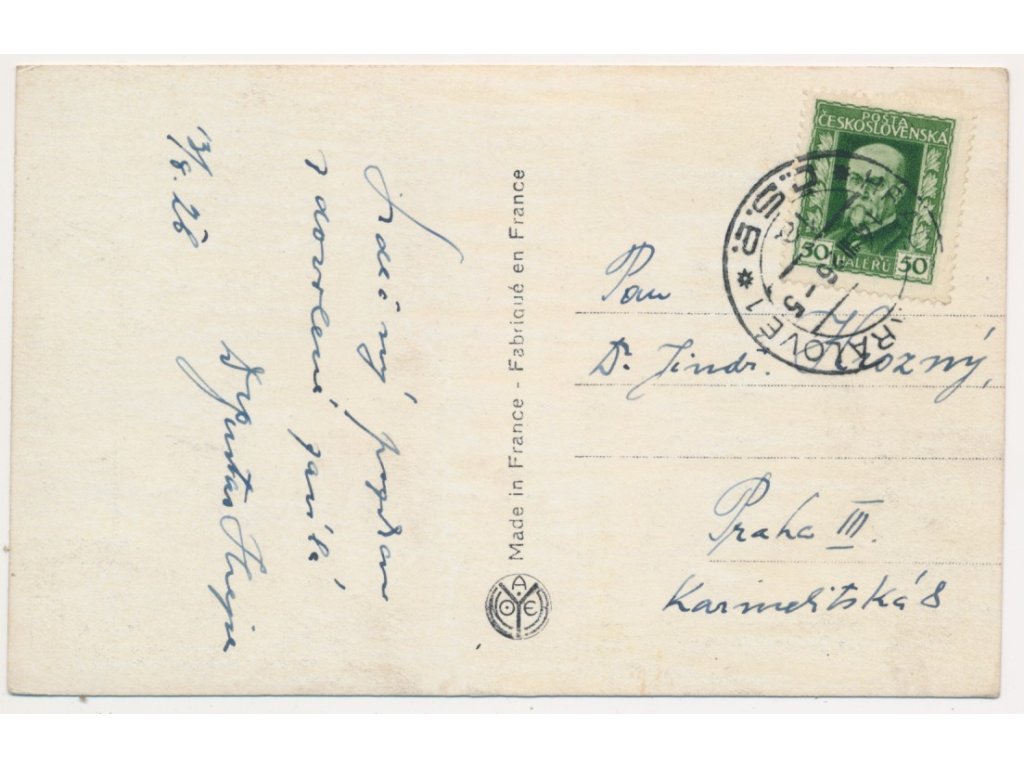 Srdečný pozdrav
z dovolené zasílá
13/8.28
Made in France - Fabriqué en France
POŠTA
ČESKOSLOVENSKA
50 HALÉŘŮ 50
KRÁLOVÉ 1
ČSR
Pan
Dr. Jindř. Hrozný,
Praha III.
Karmelitská 8